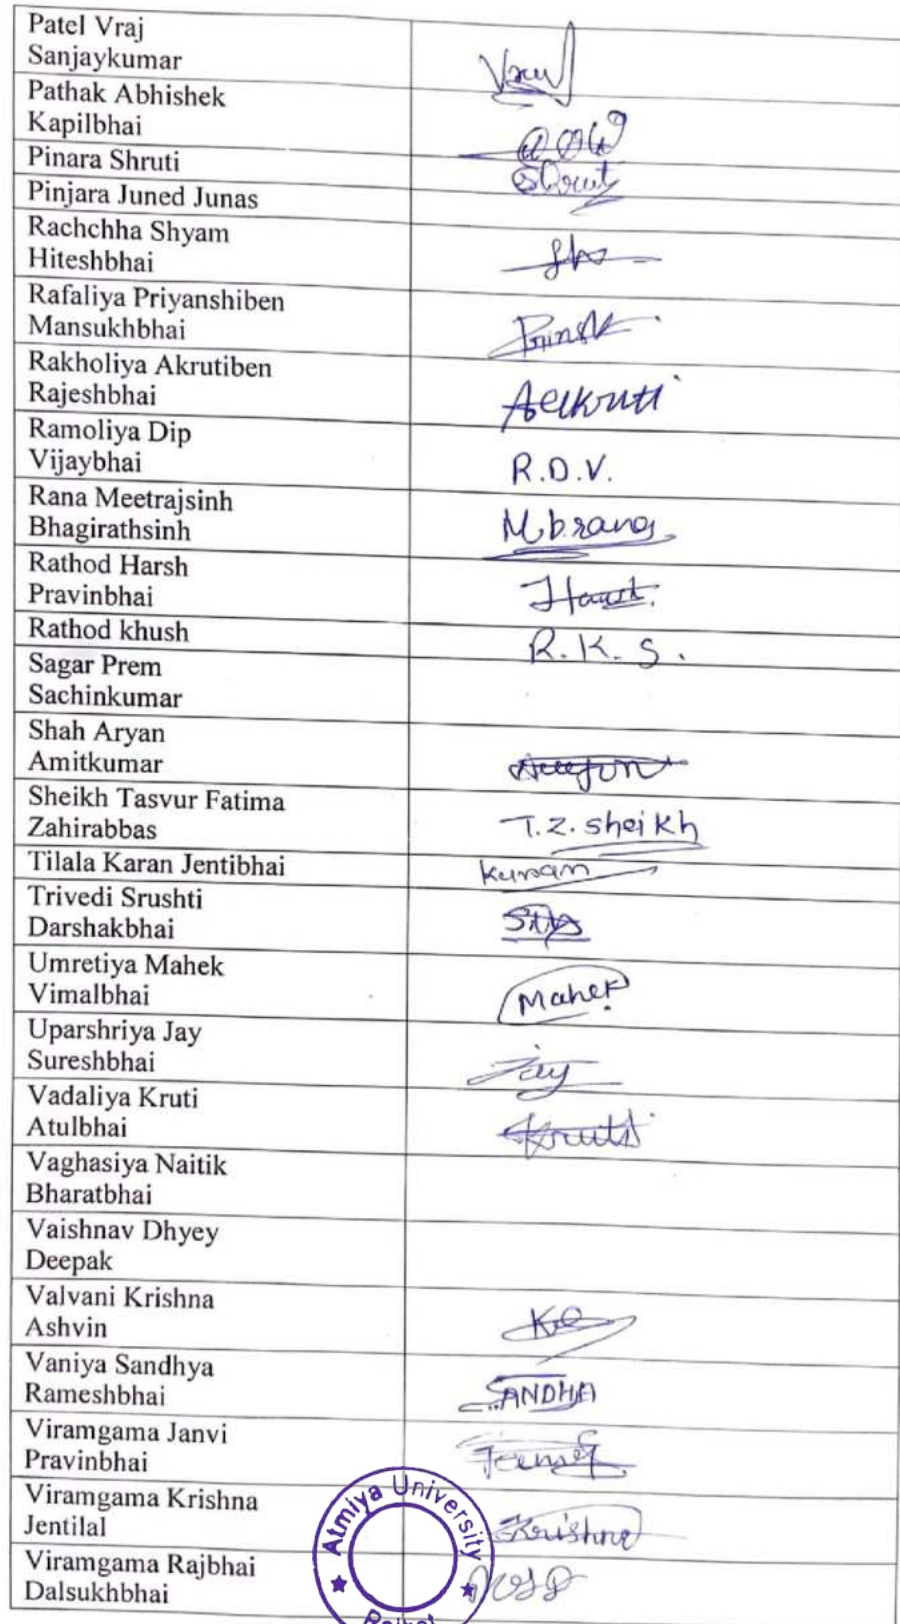 Patel Vraj
Sanjaykumar
Pathak Abhishek
Kapilbhai
Pinara Shruti
Pinjara Juned Junas
Rachchha Shyam
Hiteshbhai
Rafaliya Priyanshiben
Mansukhbhai
Rakholiya Akrutiben
Rajeshbhai
Ramoliya Dip
Vijaybhai R.D.V.
Rana Meetrajsinh
Bhagirathsinh M.b.rana
Rathod Harsh
Pravinbhai
Rathod khush R.K.S.
Sagar Prem
Sachinkumar
Shah Aryan
Amitkumar
Sheikh Tasvur Fatima
Zahirabbas T.Z.sheikh
Tilala Karan Jentibhai
Trivedi Srushti
Darshakbhai
Umretiya Mahek
Vimalbhai Mahek
Uparshriya Jay
Sureshbhai Jay
Vadaliya Kruti
Atulbhai Kruti
Vaghasiya Naitik
Bharatbhai
Vaishnav Dhyey
Deepak
Valvani Krishna
Ashvin
Vaniya Sandhya
Rameshbhai SANDHA
Viramgama Janvi
Pravinbhai
Viramgama Krishna
Jentilal Krishna
Viramgama Rajbhai
Dalsukhbhai
Atmiya University